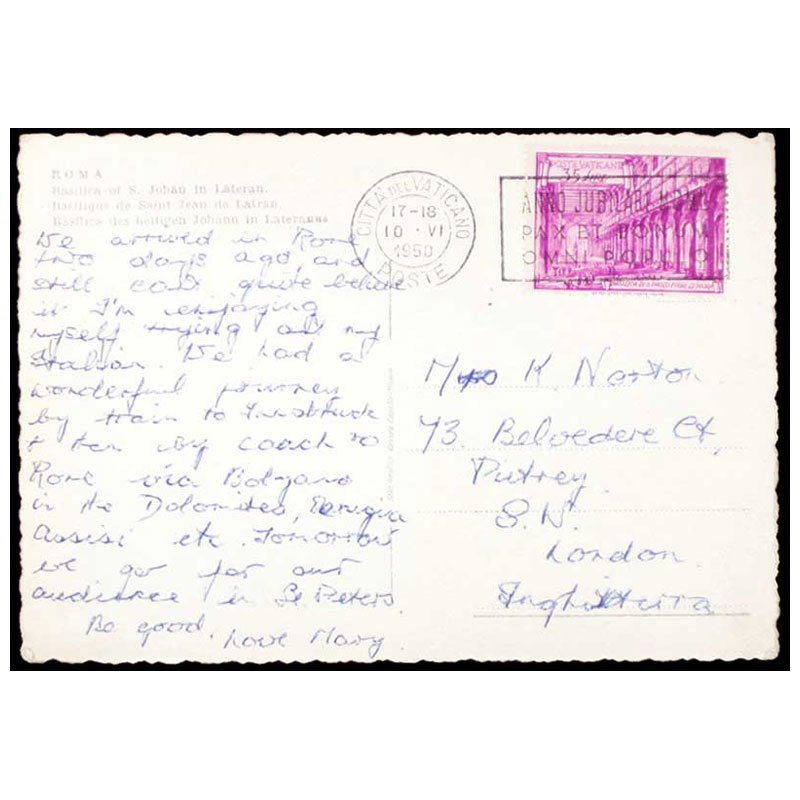 ROMA
Basilica of S. Johan in Lateran.
Basilique de Saint Jean de Latran.
Basilica des heiligen Johann in Lateranus
We arrived in Rome
two days ago and
still can't quite believe
it I'm enjoying
myself trying out my
Italian. We had a
wonderful journey
by train to Innsbruck
& then by coach to
Rome via Bolzano
in the Dolomites, Perugia
Assisi etc. Tomorrow
we go for our
audience in St Peters.
Be good.
Love Mary
CITTÀ DEL VATICANO
17-18
10 · VI
1950
POSTE
POSTE VATICANE
35 LIRE
ANNO JUBILARI
PAX ET BONUM
OMNI POPULO
K. Norton.
73. Belvedere Ct,
Putney
S.W.
London.
Inghilterra